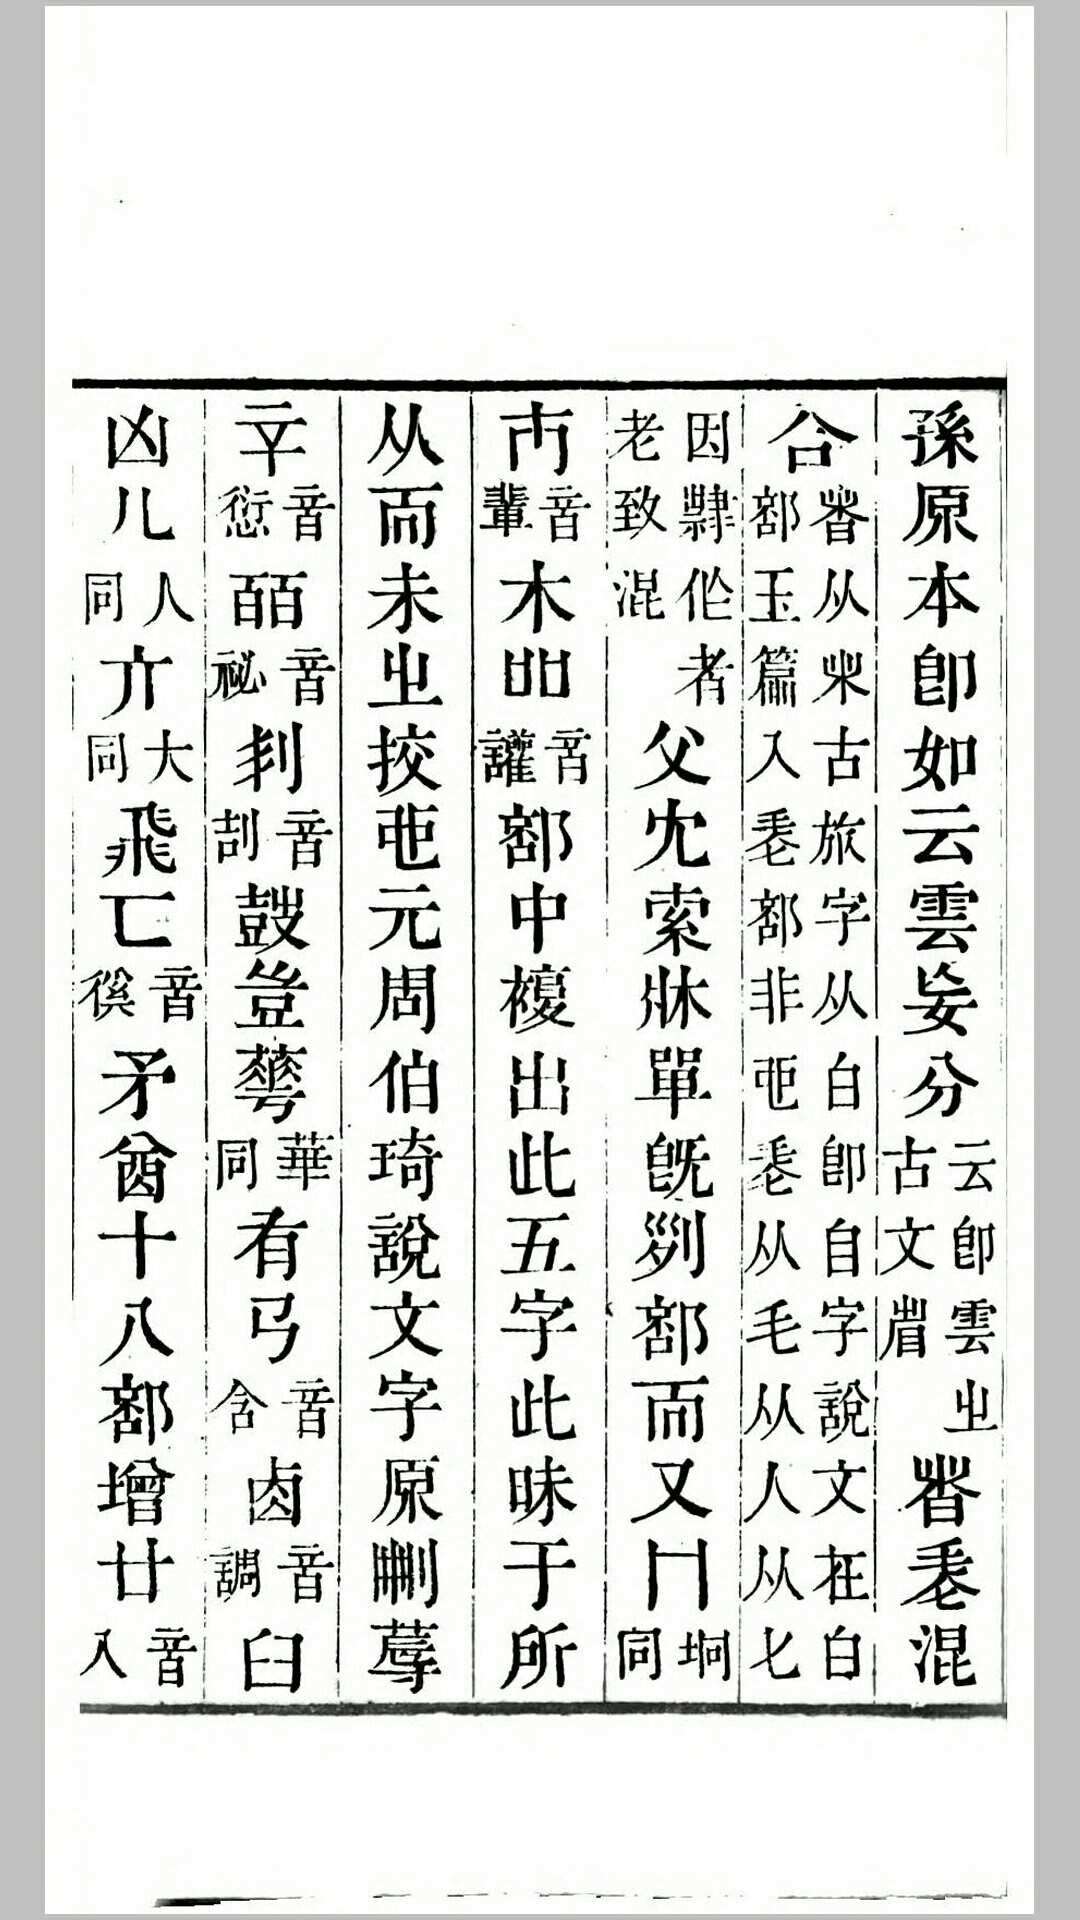 孫原本卽如云雲妄分云卽雲㞢古文㫳㫳耄混
合㫳从𣎵古旅字从白卽自字說文在白部玉篇入耄部非也耄从毛从人从匕
因隸作者老致混者父冘索牀單旣剡部而又冂坰同
𠂔音輩木吅音讙部中複出此五字此昧于所
从而未㞢挍也元周伯琦說文字原刪蓐
䇂音愆皕音祕㓞音㓤鼓豈蕚華同有弓音含卤音調臼
凶儿人同亣大同飛匸音徯矛酋十八部增廿音入